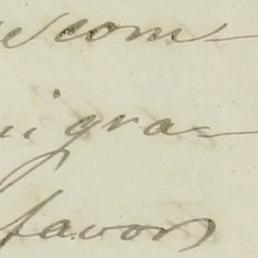 com-
igra-
favor